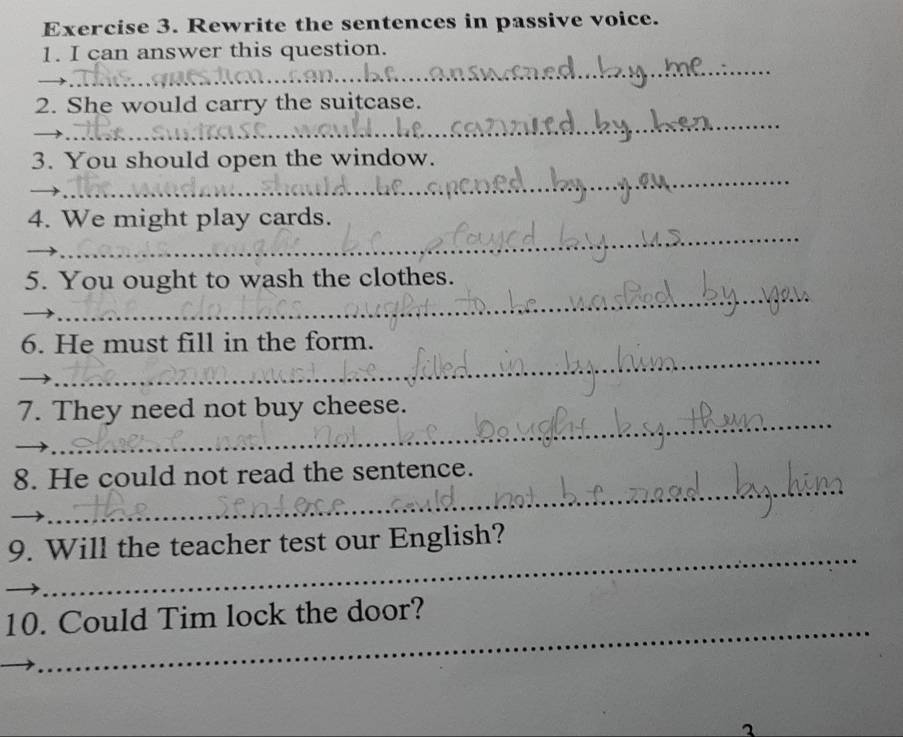 Exercise 3. Rewrite the sentences in passive voice.
1. I can answer this question.
→ This question can be answered by me
2. She would carry the suitcase.
→ the suitcase would be carried by her
3. You should open the window.
→ the window should be opened by you
4. We might play cards.
→ cards might be played by us
5. You ought to wash the clothes.
→ the clothes ought to be washed by you
6. He must fill in the form.
→ the form must be filled in by him
7. They need not buy cheese.
→ not be bought by them
8. He could not read the sentence.
→ the sentece could not be read by him
9. Will the teacher test our English?
→
10. Could Tim lock the door?
→